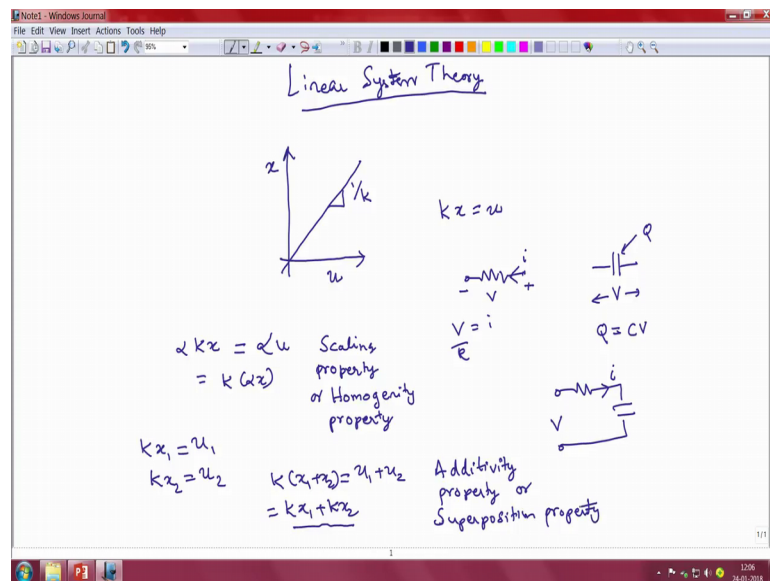 Note1 - Windows Journal
File Edit View Insert Actions Tools Help
95%
Linear System Theory
x
1/k
u
kx = u
i
- V +
V/R = i
Q
V
Q = CV
i
V
αkx = αu
= k(αx)
Scaling
property
or Homogenity
property
kx₁ = u₁
kx₂ = u₂
k(x₁+x₂) = u₁+u₂
= kx₁+kx₂
Additivity
property or
Superposition property
1/1
1
12:06
24-01-2018